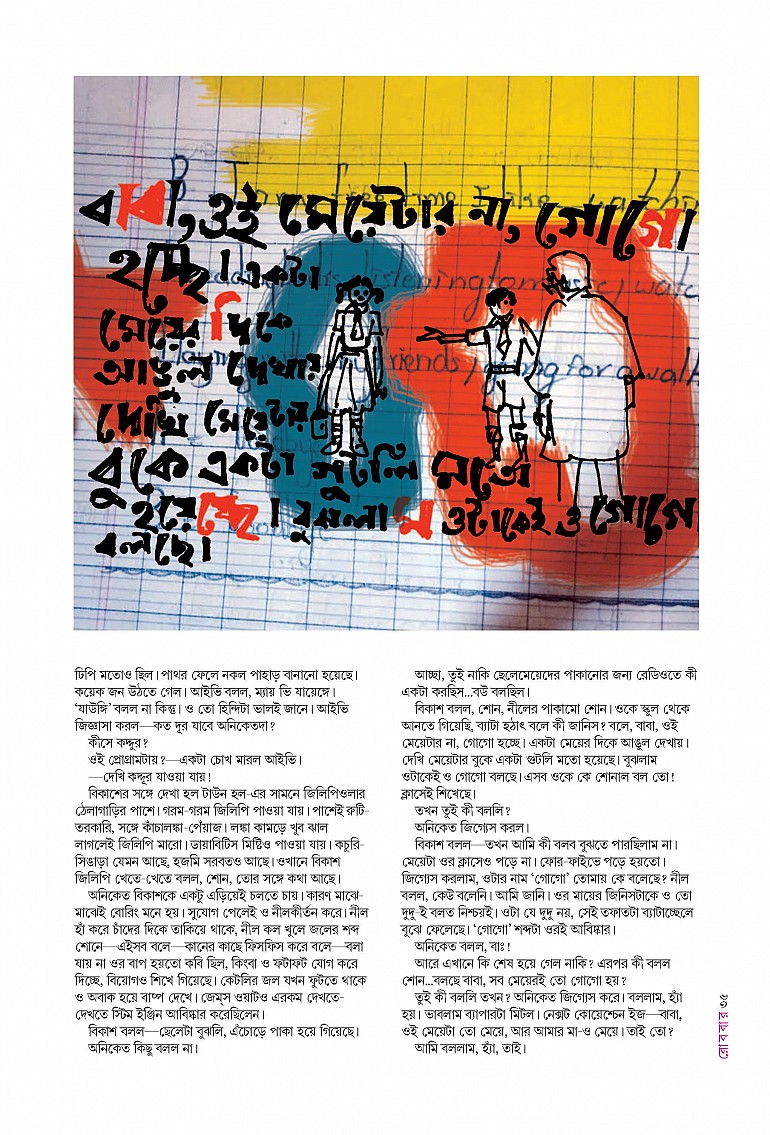 বাবা, ওই মেয়েটার না, গোগো
হচ্ছে। একটা
মেয়ের দিকে
আঙুল দেখায়
দেখি মেয়েটার
বুকে একটা গুটলি মতো
হয়েছে। বুঝলাম ওটাকেই ও গোগো
বলছে।
ঢিপি মতোও ছিল। পাথর ফেলে নকল পাহাড় বানানো হয়েছে।
কয়েক জন উঠতে গেল। আইভি বলল, ম্যায় ভি যায়েঙ্গে।
‘যাউঙ্গি’ বলল না কিন্তু। ও তো হিন্দিটা ভালই জানে। আইভি
জিজ্ঞাসা করল—কত দূর যাবে অনিকেতদা?
কীসে কদ্দুর?
ওই প্রোগ্রামটায়?—একটা চোখ মারল আইভি।
—দেখি কদ্দুর যাওয়া যায়!
বিকাশের সঙ্গে দেখা হল টাউন হল-এর সামনে জিলিপিওলার
ঠেলাগাড়ির পাশে। গরম-গরম জিলিপি পাওয়া যায়। পাশেই রুটি-
তরকারি, সঙ্গে কাঁচালঙ্কা-পেঁয়াজ। লঙ্কা কামড়ে খুব ঝাল
লাগলেই জিলিপি মারো। ডায়াবিটিস মিষ্টিও পাওয়া যায়। কচুরি-
সিঙাড়া যেমন আছে, হজমি সরবতও আছে। ওখানে বিকাশ
জিলিপি খেতে-খেতে বলল, শোন, তোর সঙ্গে কথা আছে।
অনিকেত বিকাশকে একটু এড়িয়েই চলতে চায়। কারণ মাঝে-
মাঝেই বোরিং মনে হয়। সুযোগ পেলেই ও নীলকীর্তন করে। নীল
হাঁ করে চাঁদের দিকে তাকিয়ে থাকে, নীল কল খুলে জলের শব্দ
শোনে—এইসব বলে—কানের কাছে ফিসফিস করে বলে—বলা
যায় না ওর বাপ হয়তো কবি ছিল, কিংবা ও ফটাফট যোগ করে
দিচ্ছে, বিয়োগও শিখে গিয়েছে। কেটলির জল যখন ফুটতে থাকে
ও অবাক হয়ে বাষ্প দেখে। জেম্‌স ওয়াটও এরকম দেখতে-
দেখতে স্টিম ইঞ্জিন আবিষ্কার করেছিলেন।
বিকাশ বলল—ছেলেটা বুঝলি, এঁচোড়ে পাকা হয়ে গিয়েছে।
অনিকেত কিছু বলল না।
আচ্ছা, তুই নাকি ছেলেমেয়েদের পাকানোর জন্য রেডিওতে কী
একটা করছিস...বউ বলছিল।
বিকাশ বলল, শোন, নীলের পাকামো শোন। ওকে স্কুল থেকে
আনতে গিয়েছি, ব্যাটা হঠাৎ বলে কী জানিস? বলে, বাবা, ওই
মেয়েটার না, গোগো হচ্ছে। একটা মেয়ের দিকে আঙুল দেখায়।
দেখি মেয়েটার বুকে একটা গুটলি মতো হয়েছে। বুঝলাম
ওটাকেই ও গোগো বলছে। এসব ওকে কে শোনাল বল তো!
ক্লাসেই শিখেছে।
তখন তুই কী বললি?
অনিকেত জিগ্যেস করল।
বিকাশ বলল—তখন আমি কী বলব বুঝতে পারছিলাম না।
মেয়েটা ওর ক্লাসেও পড়ে না। ফোর-ফাইভে পড়ে হয়তো।
জিগ্যেস করলাম, ওটার নাম ‘গোগো’ তোমায় কে বলেছে? নীল
বলল, কেউ বলেনি। আমি জানি। ওর মায়ের জিনিসটাকে ও তো
দুদু-ই বলত নিশ্চয়ই। ওটা যে দুদু নয়, সেই তফাতটা ব্যাটাচ্ছেলে
বুঝে ফেলেছে। ‘গোগো’ শব্দটা ওরই আবিষ্কার।
অনিকেত বলল, বাঃ!
আরে এখানে কি শেষ হয়ে গেল নাকি? এরপর কী বলল
শোন...বলছে বাবা, সব মেয়েরই তো গোগো হয়?
তুই কী বললি তখন? অনিকেত জিগ্যেস করে। বললাম, হ্যাঁ
হয়। ভাবলাম ব্যাপারটা মিটল। নেক্সট কোয়েশ্চেন ইজ—বাবা,
ওই মেয়েটা তো মেয়ে, আর আমার মা-ও মেয়ে। তাই তো?
আমি বললাম, হ্যাঁ, তাই।
রোববার ৩৫